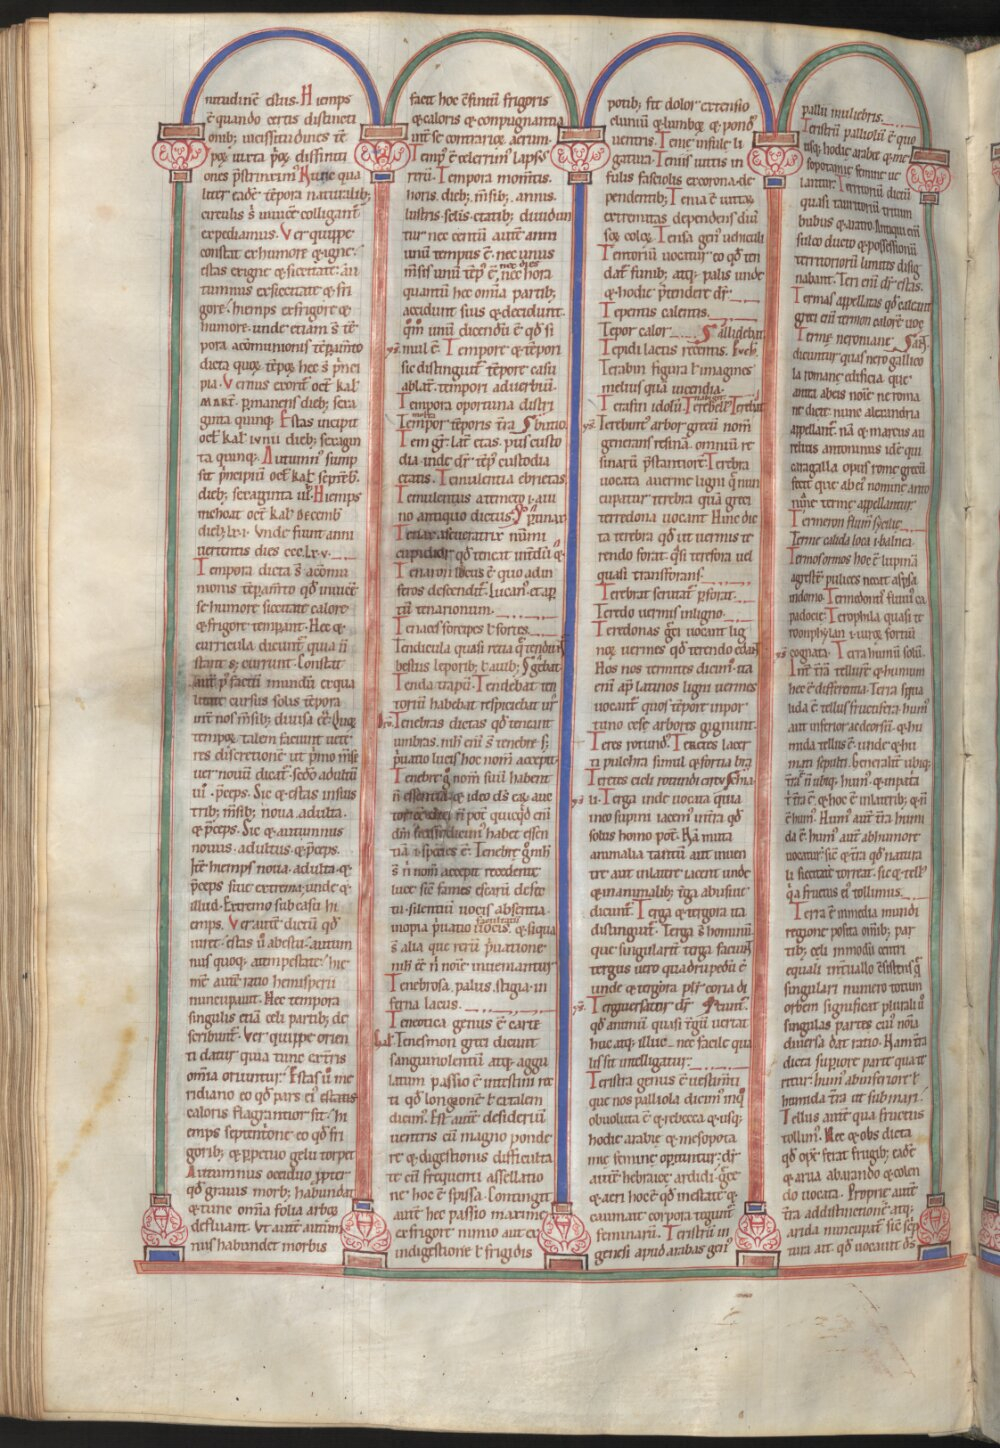 nitudinē estus. Hiemps
ē quando certis distincti
onib; uicissitudines tē
ones p̄strinximꝰ. Nunc qua
liter eadē tēpora naturalib;
circulis s̄ inuicē colligant̄
expediamus. Ver quippe
constat ex humore ⁊ igne.
estas ex igne ⁊ siccitate. au
tumnus ex siccitate ⁊ fri
gore. hiemps ex frigore ⁊
humore. unde etiam s̄ tē
pora acōmunionis tēpam̄to
pia. Vernus exorit̄ oct̄ kal̄
MART. p̄manens dieb; sexa
ginta quinq; Estas incipit
oct̄ kal̄ iunii dieb; sexagin
ta quinq; Autumnꝰ sump
sit p̄ncipiū oct̄ kal̄ septēb̄.
dieb; sexaginta ui. Hiemps
inchoat oct̄ kal̄ decemb̄
dieb; lx.i. Vnde fiunt anni
uertentis dies ccc.lx.v.
Tempora dicta s̄ acōmu
nionis tēpam̄to qd̄ inuicē
se humore siccitate calore
⁊ frigore temp̄ant. Hec ⁊
curricula dicunt̄ quia n̄
stant s; currunt. Constat
aut̄ p̄ factū mundū ex qua
litate cursus solis tēpora
tempoꝝ talem faciunt uete
res discretionē ut p̄mo m̄se
uer nouū dicat̄. sc̄do adultū
.p̄ceps. Sic ⁊ estas in suis
trib; m̄sib; noua. adulta.
⁊ p̄ceps. Sic ⁊ autumnus
nouus. adultus. ⁊ p̄ceps.
Itē hiemps noua. adulta. ⁊
p̄ceps siue extrema. unde ⁊
illud. Extremo sub casu hi
emps. Ver autē dictū qd̄
uiret. estas ū̄ ab estu. autum
nus quoq; a tempestate. hie
mē autē ratio hemisperii
nuncupauit. Hec tempora
singulis etiā celi partib; de
scribunt̄. Ver quippe orien
ti datur quia tunc ex t̄ris
om̄ia oriuntur. Estas ū̄ me
ridiano eo qd̄ pars ei̅ estatis
caloris flagrantior sit. hi
emps septentione eo qd̄ fri
gorib; ⁊ p̄petuo gelu torpet
Autumnus occiduo p̱ter
qd̄ grauis morb; habundat
⁊ tunc om̄ia folia arboꝝ
defluant. Vt autē autum
nus habundet morbis
facit hoc cfiniū frigoris
⁊ caloris ⁊ conpugnantia
int̄ se contrarioꝝ aerum.
Tempꝰ ē celerrimꝰ lapsꝰ
rerū. Tempora momtis.
horis. dieb; m̄sib; annis.
lustris. sc̄lis. etatib; diuidun
tur nec centū autē anni
unū tempus ē. nec unus
m̄sis unū tēpꝰ ē nec hora
nec dies
quantū hec om̄ia partib;
accidunt suis ⁊ decidunt.
qm̄ unū dicendū ē qd̄ si
mul ē. Tempore ⁊ tēpori
sic distinguit̄ tēpore casu
ablat̄. tempori aduerbiū.
Tempora oportuna distri
Tempor̄ tēporis t̄ra Sbutio.
Tem gr̄. lat̄ etas. pus custo
dia. inde dr̄ tēpꝰ custodia
etatis. Temulentia ebrietas.
Temulentus a temeto .i. a ui
no antiquo dictus.
Tenax asseueratrix nūmi
cupidior qd̄ teneat
Tenaron locus ē quo ad in
feros descendit̄. lucanꝰ
tenarionum.
Tenaces forcipes l̄ fortes.
Tendicula quasi recia
bestiis leporib; l̄ auib;
Tenda trapu. Tendebat ten
toriū habebat respiciebat
Tenebras dictas qd̄ teneant
umbras. nih̄ eni̅ s̄ tenebre s;
p̄uatio lucis hoc nom̄ accepit.
Tenebrę q̄ nom̄ suū habent
n̄ essentiā ⁊ ideo
n̄ pot̄ quicqd̄ eni̅
habet essen
tiā .i. species ē. Tenebrę
s̄ n̄ nom̄ accepit recedente
luce sic̄ fames escarū defec
tu. silentiū uocis absentia.
inopia p̄uatio uocis. ⁊ siqua
s̄ alia que rerū p̄uatione
nih̄ ee̅ n̄ noīe inueniantur
Tenebrosa. palus. stigia. in
ferna lacus.
Teneotica genus ē carte
Tenesmon greci dicunt
sanguinolentū atq; aggu
latum passio ē intestini rec
ti qd̄ longaone l̄ extalem
dicimꝰ. Est autē desideriū
uentris cū magno ponde
re ⁊ digestionis difficulta
te cū frequenti assellatio
ne. hoc ē spissa. Contingit
autē hec passio maxime
ex frigore nimio aut ex
indigestione l̄ frigidis
potib; fit dolor extensio
cluniū ⁊ lumboꝝ ⁊ pondꝰ
uentris. Tenię insulę li
gatura. Tenuis uittis in
fulis fasciolis ex corona de
pendentib; Tenia ē uittaꝝ
extremitas dependens diū
soꝝ coloꝝ. Tensa genꝰ uehiculi
Tentoriū uocatur eo qd̄ ten
dat̄ funib; atq; palis unde
⁊ hodie p̄tendere dr̄.
Tepentis calentis.
Tepor calor.
Tepidi lactis recentis.
Terabin figura l̄ imagines
melius qua incendia.
Terafin idolū.
Terebintꝰ arbor grecū nom̄
generans resinā. omniū re
sinarū p̄stantiorē. Terebra
uocata a uerme ligni q̄ nun
cupatur terebra quā greci
terredona uocant. Hinc dic
ta terebra qd̄ ut uermis te
rendo forat. q̄si terefora uel
quasi transforans.
Terebrat scrutat̄ p̄forat.
Teredo uermis in ligno.
Teredonas gręci uocant lig
neos uermes qd̄ terendo edāt
Hos nos termites dicimꝰ. ita
eni̅ ap̄ latinos ligni uermes
uocant̄ quos tēport̄ inpor
tuno cesę arbores gignunt.
Teres rotundꝰ. Teretes lacer
ti pulchra simul ⁊ fortia bra
Teretes
Terga inde uocata quia
in eo supini iacemꝰ in t̄ra qd̄
solus homo pot̄. Nā muta
animalia tantū aut in uen
tre aut in latere iacent unde
⁊ in animalib; t̄ga abusiue
dicunt̄. Terga ⁊ tergora ita
distingunt̄. Terga s̄ hominū
que singularit̄ tergū faciunt
tergus uero quadrupedū ē
unde ⁊ tergora plr̄ coria di
Tergiuersatur dr̄
qd̄ animū quasi t̄gū uertat
huc atq; illuc. nec facile qua
lis sit intelligatur.
Teristra genus ē uestim̄ti
que nos palliola dicimꝰ in q̄
obuoluta ē ⁊ rebecca ⁊ usq;
hodie arabię ⁊ mesopota
mię feminę operiuntur. dr̄
autē hebraice ardidi. gr̄ce
⁊ aeri hoc ē qd̄ in estate ⁊
caumate corpora tegunt
feminarū. Teristrū in
genesi apud arabas genꝰ
pallii muliebris.
Teristrū palliolū ē quo
usq; hodie arabie ⁊ me
sopotamię feminę ue
lantur. Territoriū dictū
quasi tauritoriū tritum
bubus ⁊ aratro. Antiqui eni̅
sulco ducto ⁊ possessionū
⁊ territoriorū limites desig
nabant. Teri eni̅ dr̄ estas.
Termas appellatas qd̄ caleant
greci eni̅ termon calorē uoc̄.
Termę neronianę
dicuntur quas nero gallico
la romanę edificia que
antea ab eis noīe neroma
ne dicte nunc alexandria
appellant̄. nā ⁊ marcus au
relius antoninus idē qui
caragalla opus rome grecū
fecit que ab eiꝰ nomine anto
ninę termę appellantur.
Termeron flum̄ sycilię
Terme calida loca .i. balnea.
Termosormos hoc ē lupinā
agrestē pulices necat aspsa
in domo. Termedontis fluuiꝰ ca
padocię. Terophila quasi te
roonphylan .i. uiroꝝ fortiū
cognata. Terra humꝰ solū.
Int̄ t̄rā tellurē ⁊ humum
hec ē differentia. Terra siqua
lida ē tellus fructifera. humꝰ
aut inferior ac deorsū. ⁊ hu
mida tellus ē. unde ⁊ hu
mati sepulti. Generalit̄ ubiq;
t̄ra n̄ ubiq; humꝰ. ⁊ in pat̄ia
t̄ t̄ra ē. ⁊ hoc ē in latrib; ⁊ n̄
ē humꝰ. Humꝰ autē t̄ra humi
da ē. humꝰ autē ab humore
uocatur. sic̄ ⁊ t̄ra qd̄ natura
li siccitate torreat. sic ⁊ tellꝰ
q̄a fructus eiꝰ tollimus.
Terra ē in media mundi
regione posita omīb; par
tib; celi in modū centri
equali int̄uallo csistens q̄
singulari numero totum
orbem significat plurali ū̄
singulas partes cuiꝰ noīa
diuersa dat ratio. Nam t̄ra
dicta a supiore parte qua te
ritur. humꝰ ab inferiore l̄
humida t̄ra ut sub mari.
Tellus autē qua fructus
tollimꝰ. Hec ⁊ obs dicta
qd̄ opē ferat frugib; eadē
⁊ arua ab arando ⁊ colen
do uocata. Proprie autē
t̄ra ad distinctionē atq;
arida nuncupat̄ sic̄ scp̄
tura ait qd̄ uocauit ds̄